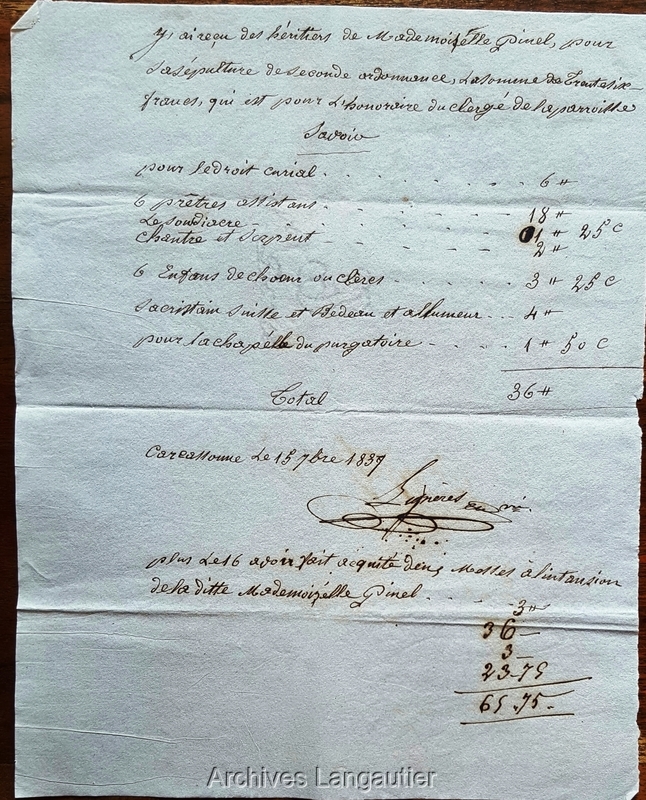 y, ai reçu des héritiers de Mademoizélle Pinel, pour
sa sépulture de seconde ordonnance, La somme de Trente six
francs, qui est pour L'honoraire du clergé de la parroisse
Savoir
pour le droit curial 6 ₶
6 prêtres assistans 18 ₶
Le soudiacre 1 ₶ 25 c
chantre et serpent 2 ₶
6 Enfans de choeur ou clercs 3 ₶ 25 c
sacristain suisse et Bedeau et allumeur 4 ₶
pour la chapélle du purgatoire 1 ₶ 50 c
Total 36 ₶
Carcassonne Le 15 7bre 1839
plus Le 16 avoir fait acquité deux Messes à l'intansion
de la ditte Mademoizélle Pinel 3 ₶
36 -
3 -
23-75
65.75-
Archives Langautier